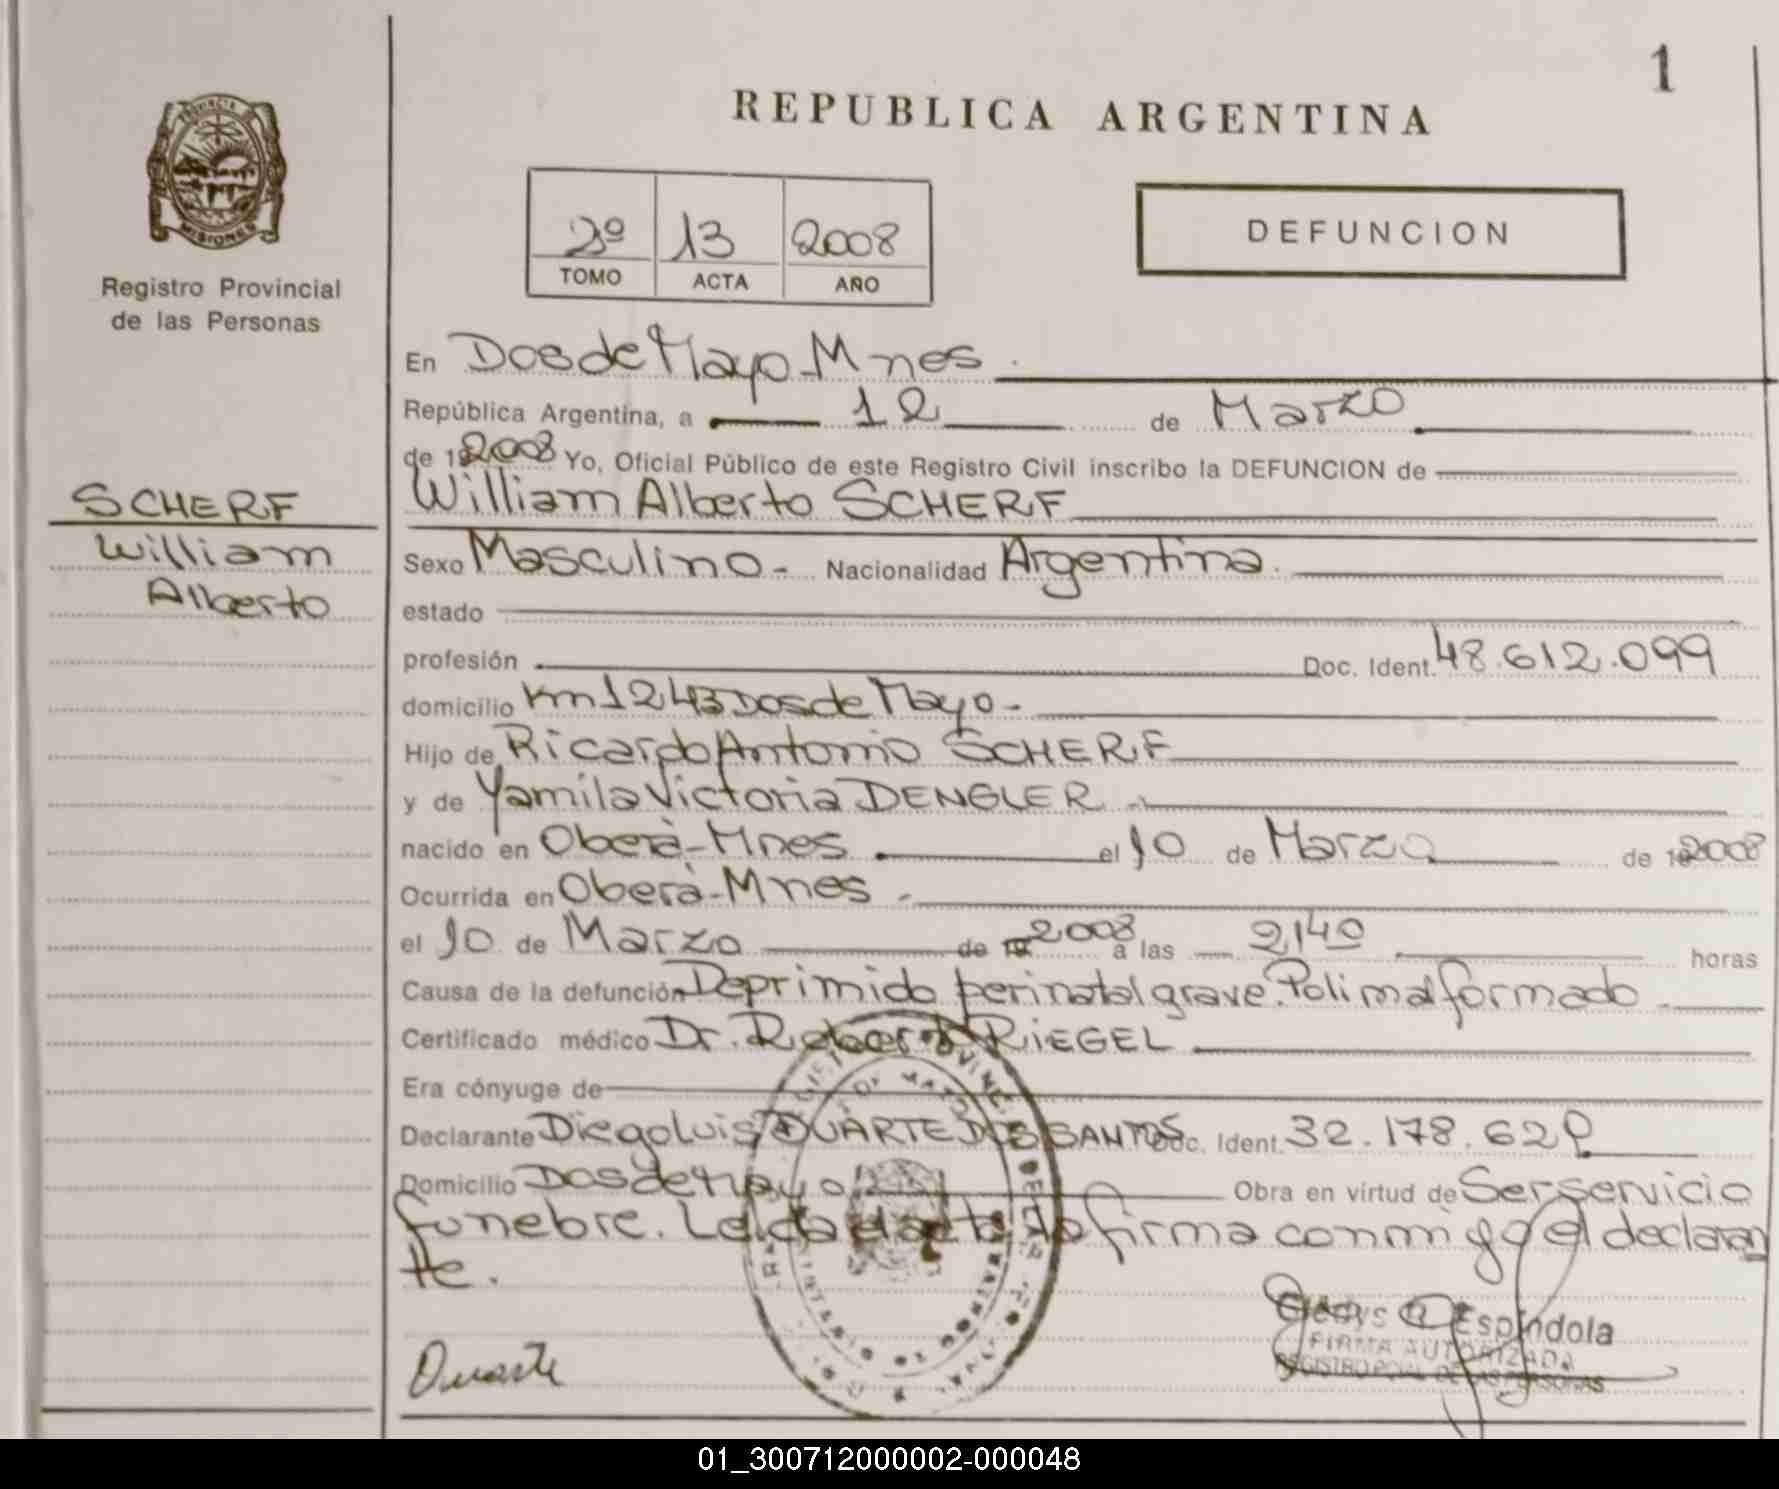 1
REPUBLICA ARGENTINA
PROVINCIA DE
MISIONES
Registro Provincial
de las Personas
2º 13 2008
TOMO ACTA AÑO
DEFUNCION
En Dos de Mayo - Mnes.
República Argentina, a 12 de Marzo
de 2008 Yo, Oficial Público de este Registro Civil inscribo la DEFUNCION de
SCHERF
William
Alberto
William Alberto SCHERF
Sexo Masculino - Nacionalidad Argentina.
estado
profesión Doc. Ident. 48.612.099
domicilio Km 1243 Dos de Mayo -
Hijo de Ricardo Antonio SCHERF
y de Yamila Victoria DENGLER -
nacido en Oberà - Mnes el 10 de Marzo de 2008
Ocurrida en Oberà - Mnes -
el 10 de Marzo de 2008 a las 2140 horas
Causa de la defunción Deprimido perinatal grave. Polimalformado -
Certificado médico Dr. Roberto RIEGEL
Era cónyuge de
Declarante Diego Luis DUARTE DOS SANTOS Doc. Ident. 32.178.62
Domicilio Dos de Mayo Obra en virtud de Ser servicio
funebre. Leida el acta la firma conmigo el declaran
te.
Duarte
Gladys Espíndola
FIRMA AUTORIZADA
REGISTRO PCIAL. DE LAS PERSONAS
01_300712000002-000048